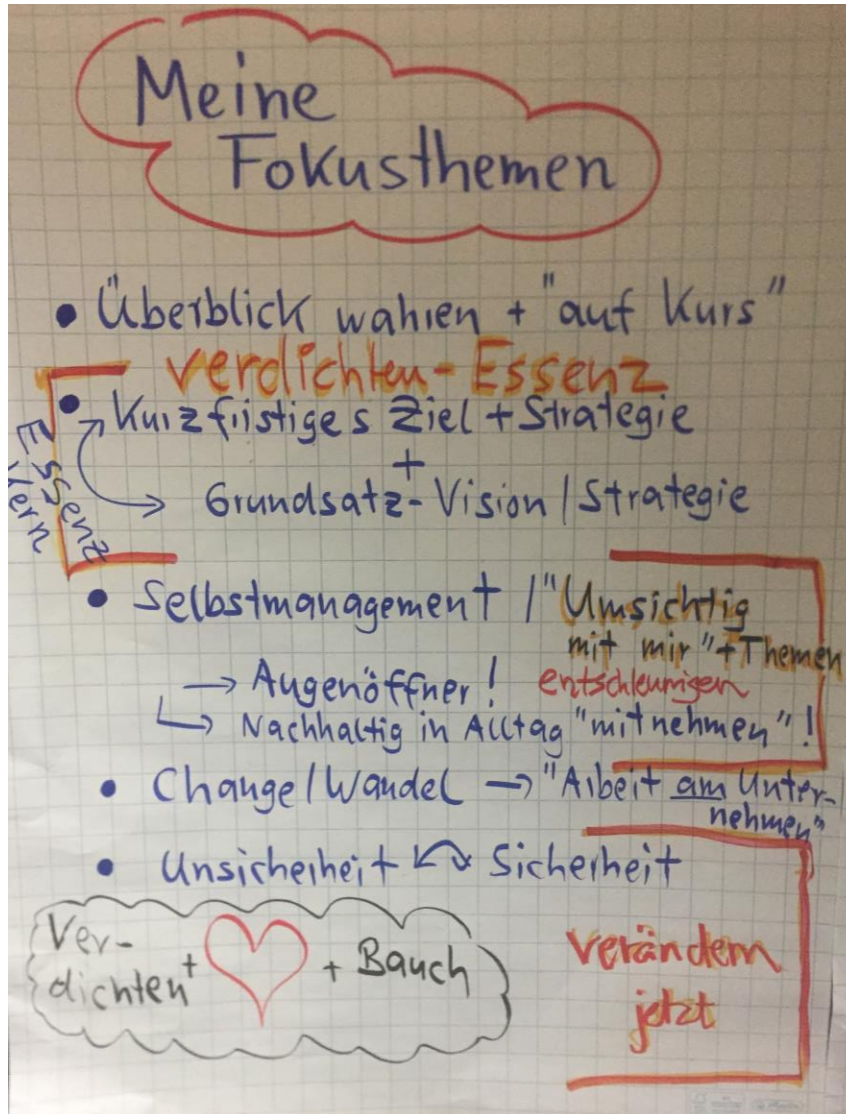 Meine
Fokusthemen
• Überblick wahren + "auf Kurs"
verdichten - Essenz
• Kurzfristiges Ziel + Strategie
+
Grundsatz- Vision / Strategie
Essenz
• Selbstmanagement / "Umsichtig
mit mir" + Themen
→ Augenöffner! entschleunigen
→ Nachhaltig in Alltag "mitnehmen"!
• Change / Wandel → "Arbeit am Unter-
nehmen"
• Unsicherheit ↔ Sicherheit
Ver-
dichten + ♡ + Bauch
verändern
jetzt